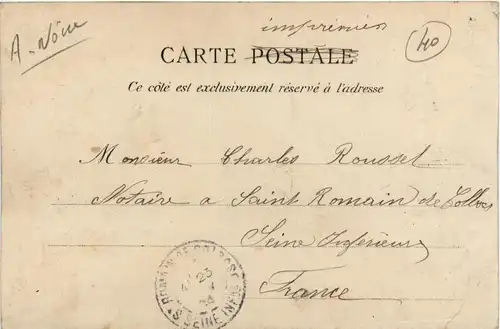 imprimés
A. Nôve
40
CARTE POSTALE
Ce côté est exclusivement réservé à l'adresse
Monsieur Charles Roussel
Notaire a Saint Romain de Colbosc
Seine Inférieure
France
ROMAIN DE COLBOSC
23
SEINE INFRE